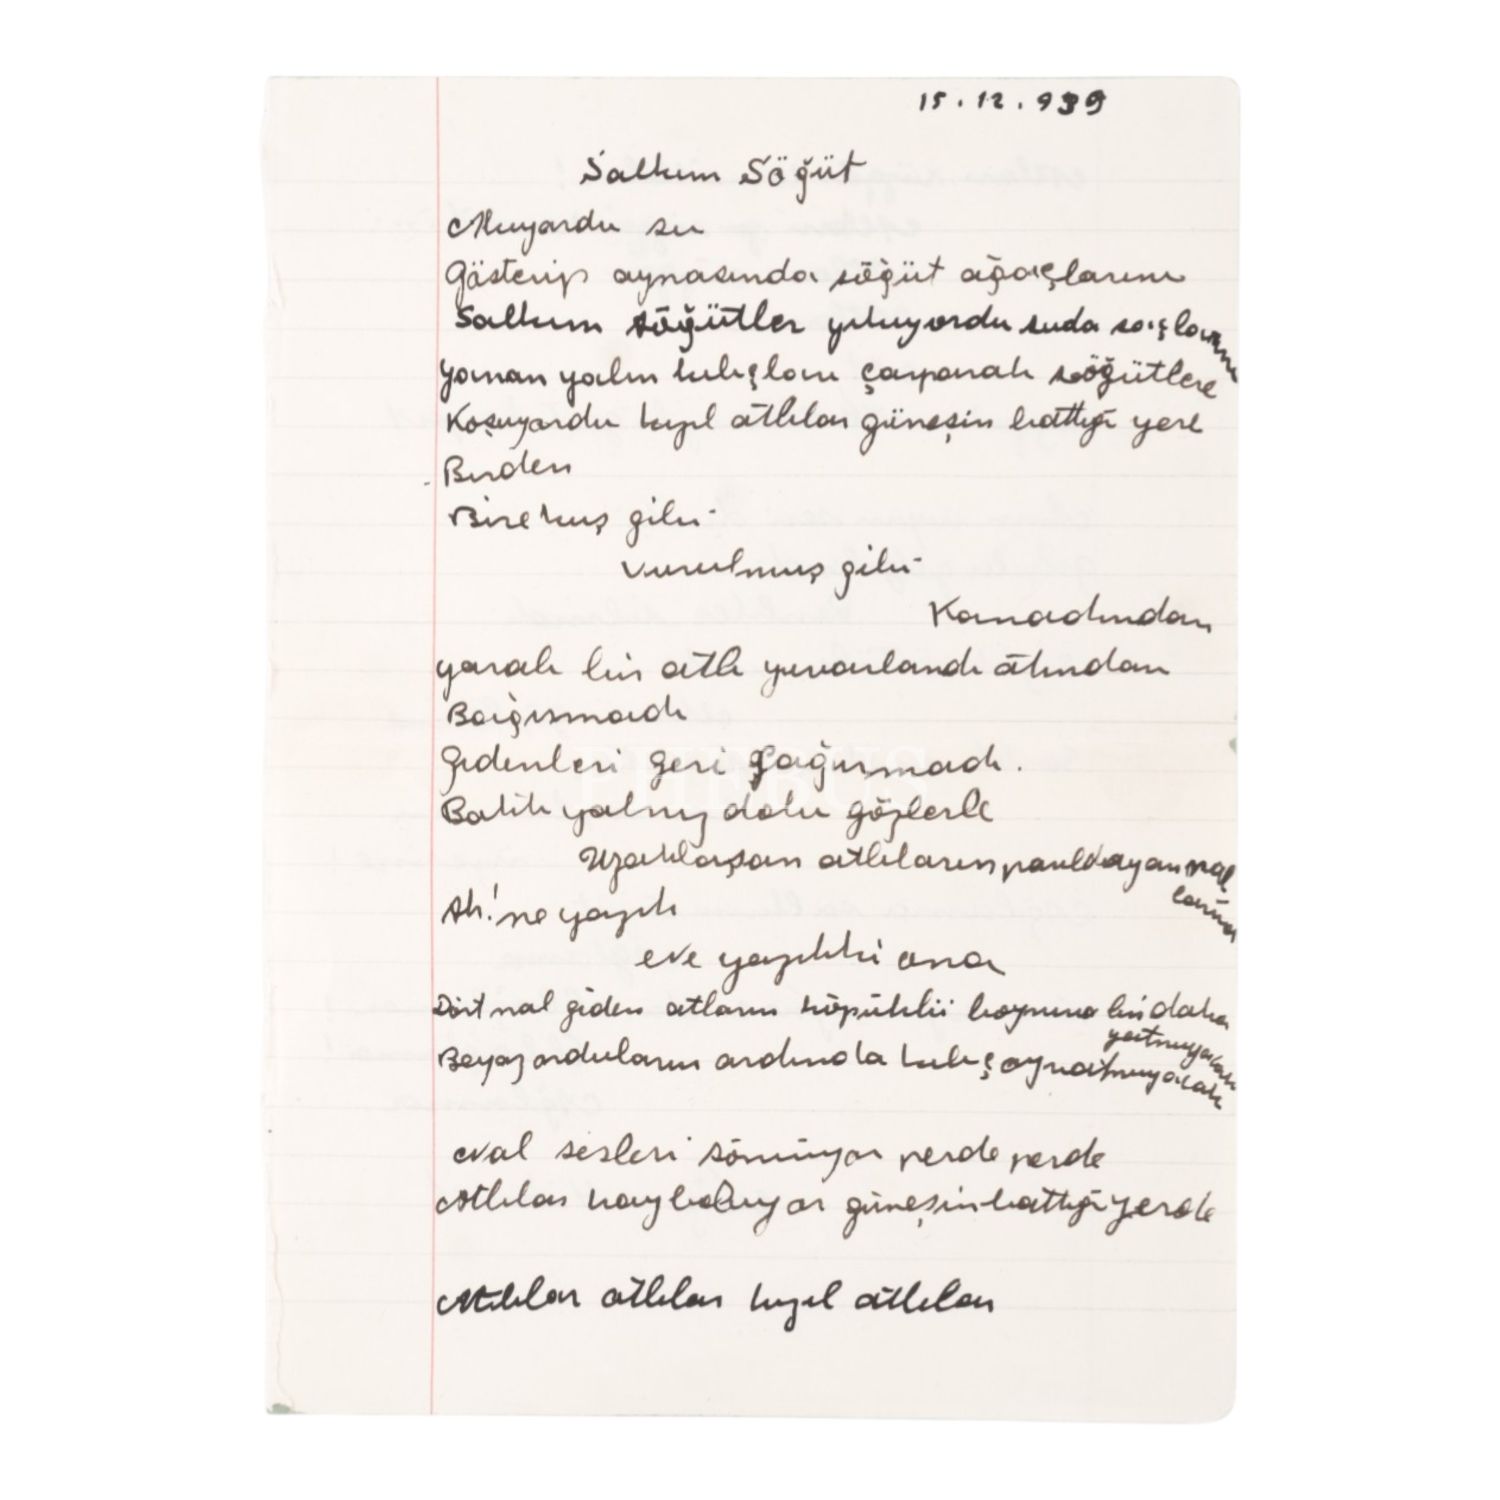 15.12.939
Salkım Söğüt
Akıyordu su
Gösterip aynasında söğüt ağaçlarını
Salkım söğütler yıkıyordu suda saçlarını
yanan yalın kılıçları çarparak söğütlere
Koşuyordu kızıl atlılar güneşin battığı yere
Birden
Bire kuş gibi
vurulmuş gibi
Kanadından
yaralı bir atlı yuvarlandı atından
Bağırmadı
Gidenleri geri çağırmadı.
Baktı yalnız dolu gözlerle
Uzaklaşan atlıların parıldayan nal
larına
Ah! ne yazık
Ne yazıkki ona
Dört nal giden atların köpüklü boynuna bir daha
yatmıyacak
Beyaz orduların ardında kılıç oynatmıyacak
Nal sesleri sönüyor perde perde
Atlılar kayboluyor güneşin battığı yerde
Atlılar atlılar kızıl atlılar
PHEBUS